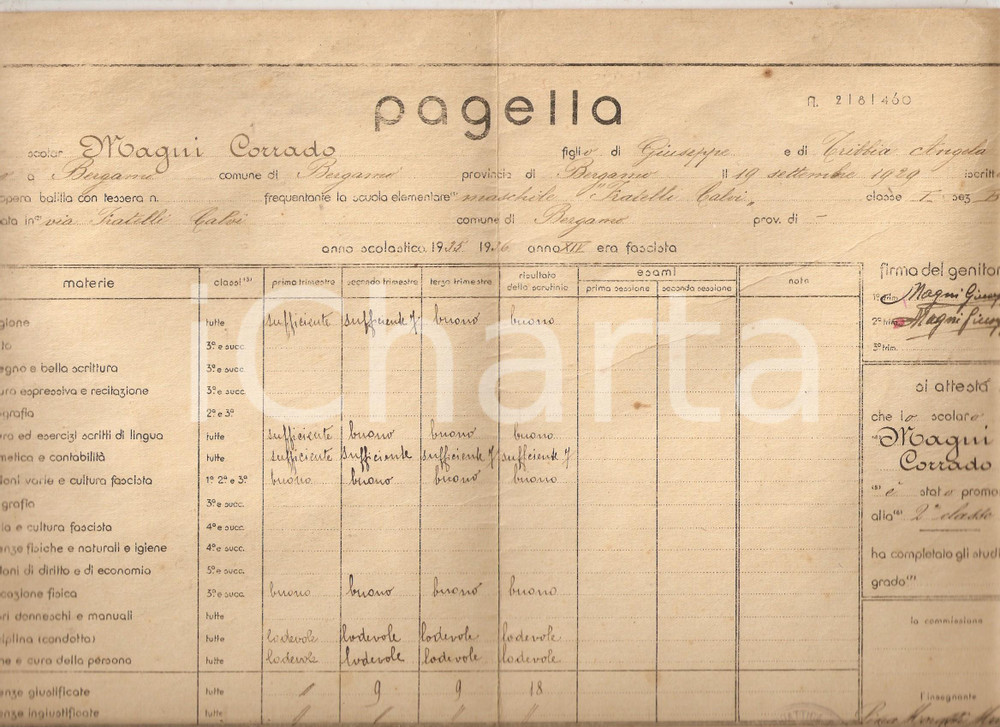 pagella
n. 2181460
scolar Magni Corrado figlio di Giuseppe e di Tribbia Angela
a Bergamo comune di Bergamo provincia di Bergamo il 19 settembre 1929 iscritt
opera balilla con tessera n. frequentante la scuola elementare maschile "Fratelli Calvi" classe I sez B
via Fratelli Calvi comune di Bergamo prov. di –
anno scolastico 1935 1936 anno XIV era fascista
materie classi primo trimestre secondo trimestre terzo trimestre risultato dello scrutinio esami prima sessione seconda sessione note
gione tutte sufficiente sufficiente buono buono
to 3ª e succ.
egno e bella scrittura 3ª e succ.
ura espressiva e recitazione 3ª e succ.
ografia 2ª e 3ª
ura ed esercizi scritti di lingua tutte sufficiente buono buono buono
metica e contabilità tutte sufficiente sufficiente sufficiente sufficiente
ioni varie e cultura fascista 1ª 2ª e 3ª buono buono buono buono
grafia 3ª e succ.
ia e cultura fascista 4ª e succ.
enze fisiche e naturali e igiene 4ª e succ.
ioni di diritto e di economia 5ª e succ.
cazione fisica 3ª e succ. buono buono buono buono
ori donneschi e manuali tutte
iplina (condotta) tutte lodevole lodevole lodevole lodevole
ne e cura della persona tutte lodevole lodevole lodevole lodevole
enze giustificate tutte / 9 9 18
enze ingiustificate tutte
firma del genitor
1º trim. Magni Giusep
2º trim. Magni Giusep
3º trim.
si attesta
che lo scolaro
Magni
Corrado
è stato promo
alla 2ª classe
ha completato gli studi
grado
la commissione
l'insegnante
iCharta